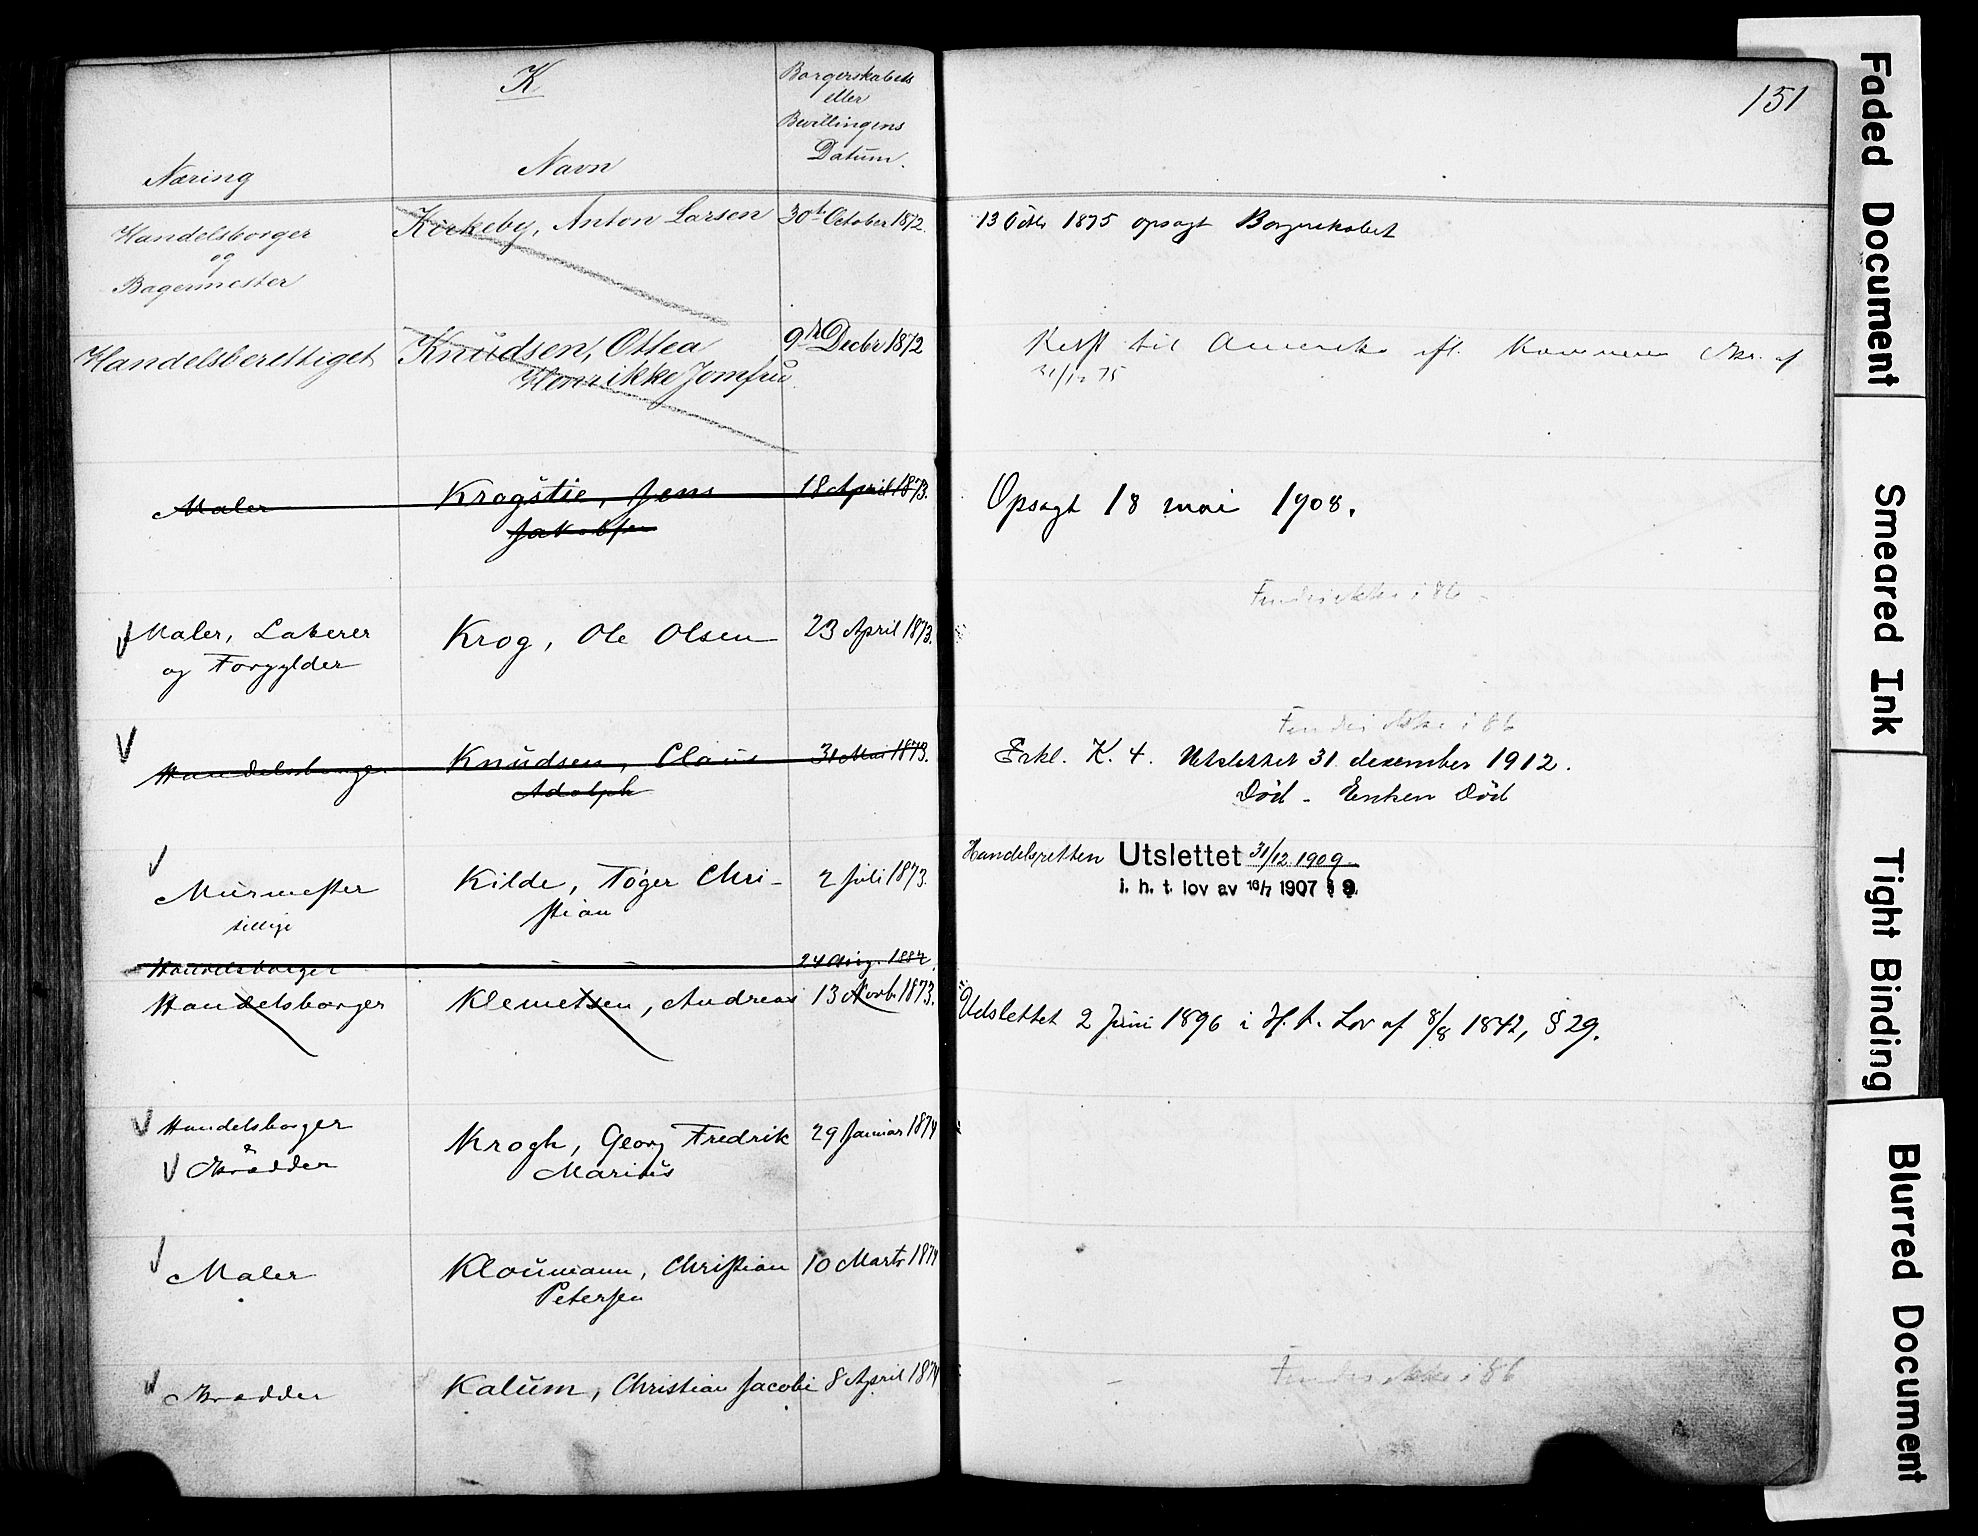 K
Næring
Navn
Borgerskabets
eller
Bevillingens
Datum.
151
Handelsborger
og
Bagermester
Kirkeby, Anton Larsen
30te October 1872.
13 Octbr 1875 opsagt Borgerskabet
Handelsberettiget
Knudsen, Ottea
Henrikke Jomfru.
9de Decbr 1872
Rejst til Amerika ifl.
Maler
Krogstie, Jens
Jakobsen
18 April 1873.
Opsagt 18 mai 1908.
Findes ikke i 86
Maler, Lakerer
og Forgylder
Krog, Ole Olsen
23 April 1873.
Findes ikke i 86
Handelsborger
Knudsen, Claus
Adolph
31 Mai 1873.
Erkl. K. 4. Utslettet 31 desember 1912.
Død - Enken Død
Murmester
tillige
Kilde, Tøger Chri-
stian
2 Juli 1873.
Handelsretten Utslettet 31/12 1909
i. h. t. lov av 16/7 1907 § 9.
Handelsborger - - - 24 Aug. 1882.
Handelsborger
Klemetsen, Andreas
13 Novb. 1873.
Udslettet 2 Juni 1896 i H. t. Lov af 8/8 1842, § 29.
Handelsborger
&
Skrædder
Krogh, Georg Fredrik
Marius
29 Januar 1874
Maler
Kloumann, Christian
Petersen
10 Marts 1874
Skrædder
Kalum, Christian Jacobi
8 April 1874
Findes ikke i 86
Faded Document
Smeared Ink
Tight Binding
Blurred Document